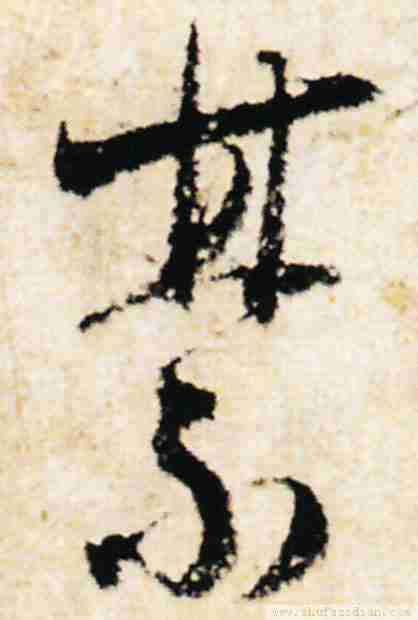 禁
www.shufazidian.com